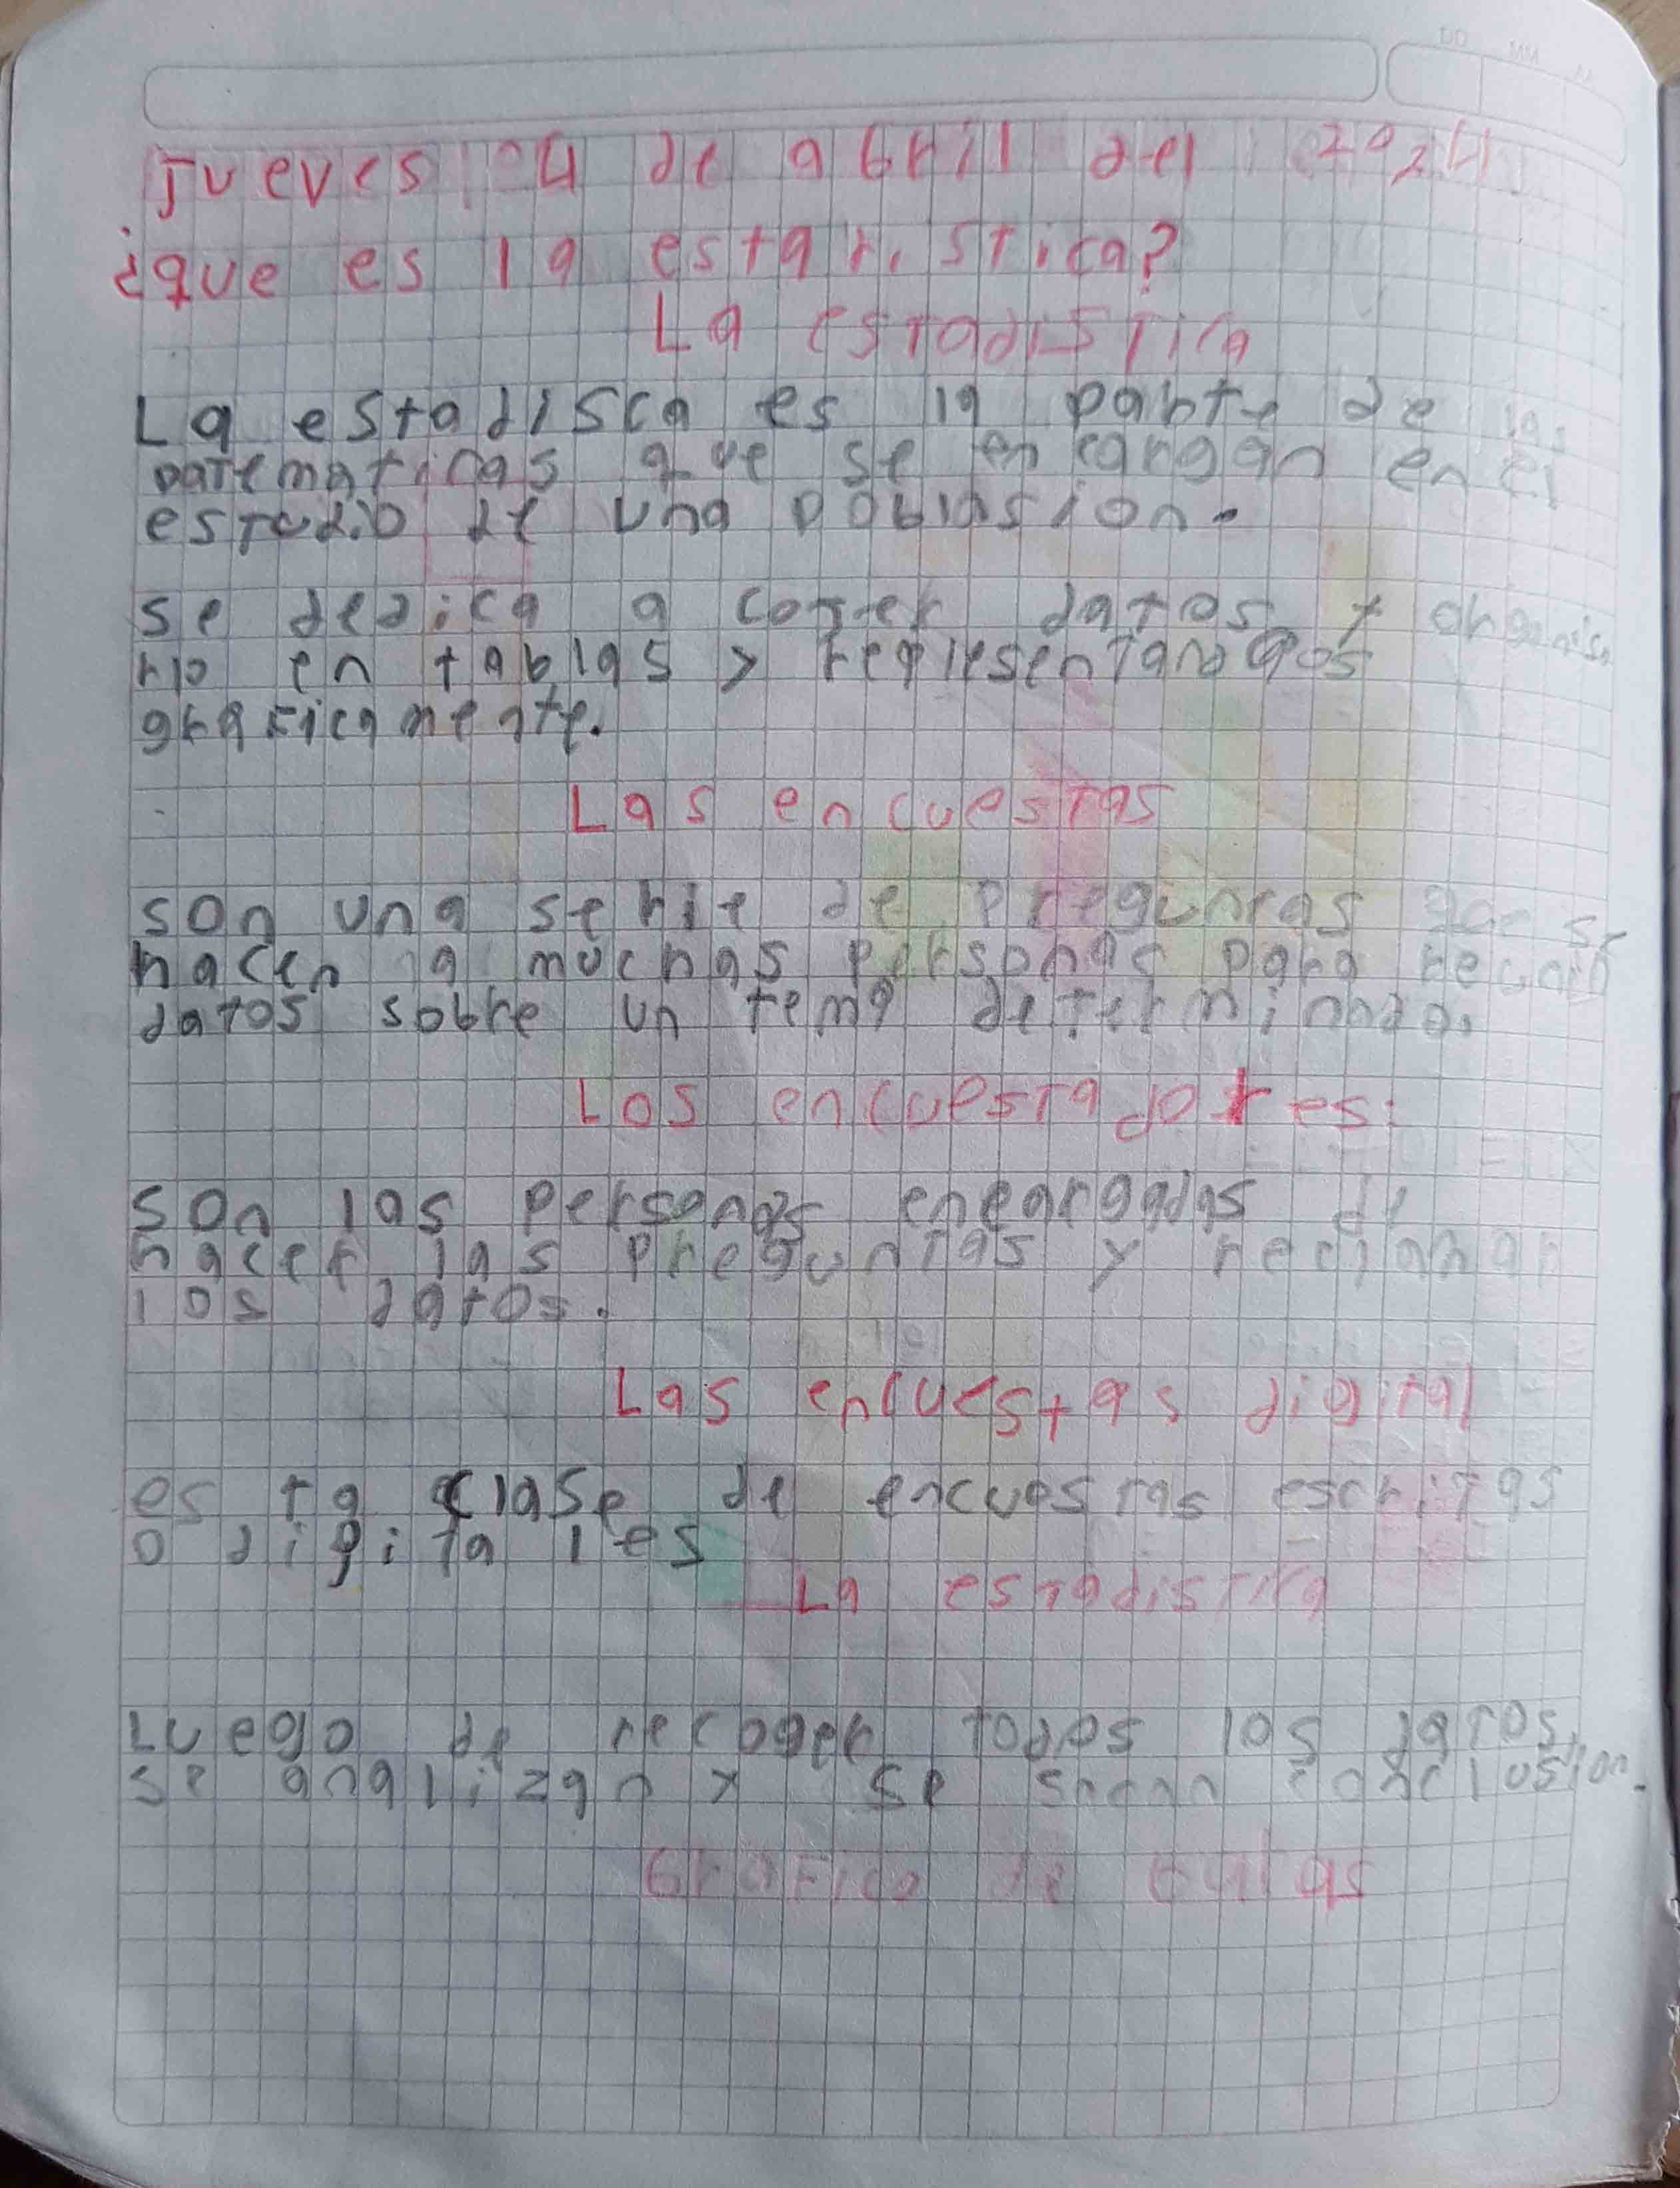 Jueves 04 de abril del 2024
¿que es la estar.stica?
La estadistica
La estadisca es la parte de las
matematicas que se encargan en el
estudio de una poblasion.
se dedica a coger datos y organisa
rlo en tablas y representandolos
graficamente.
Las encuestas
son una serie de preguntas que se
hacen a muchas personas para reunir
datos sobre un tema determinado.
Los encuestadores:
son las personas encargadas de
hacer las preguntas y
los datos.
Las encuestas digital
esta clase de encuestas escritas
o digitales
La estadistica
Luego de recoger todos los datos,
se analizan y se sacan conclusion.
Grafico de